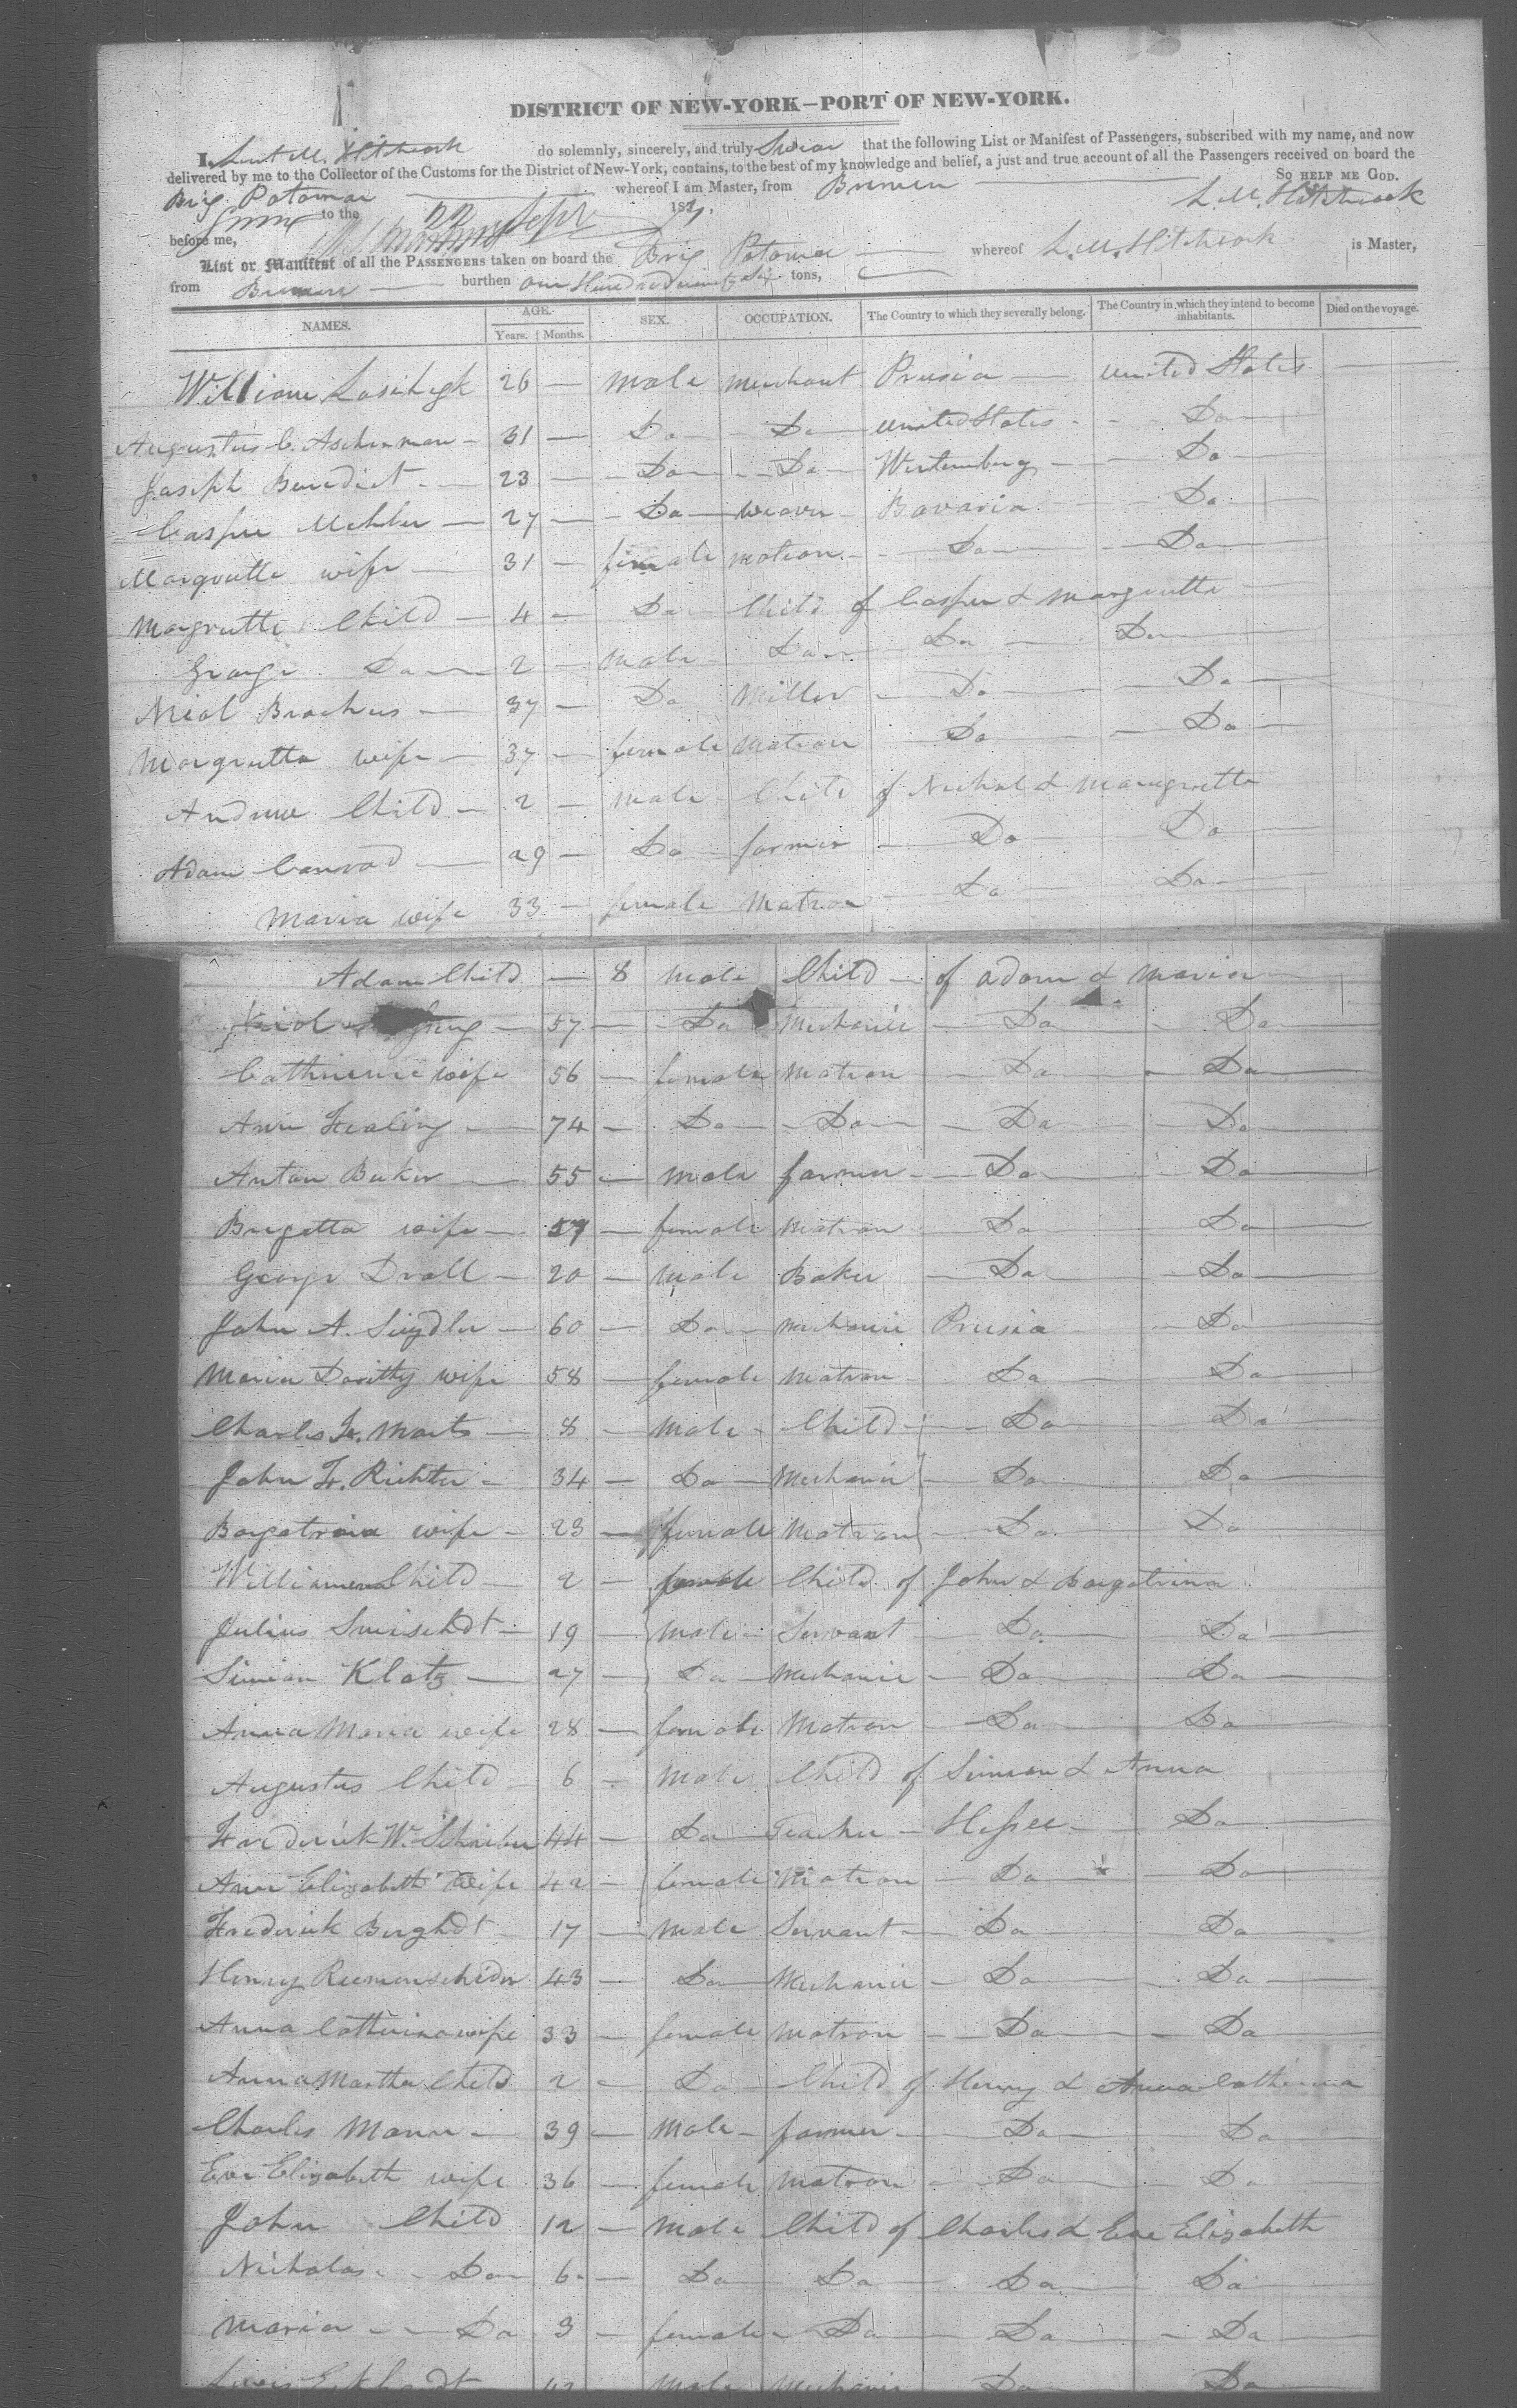 DISTRICT OF NEW-YORK—PORT OF NEW-YORK.
I, M. Hitchcock do solemnly, sincerely, and truly Swear that the following List or Manifest of Passengers, subscribed with my name, and now
delivered by me to the Collector of the Customs for the District of New-York, contains, to the best of my knowledge and belief, a just and true account of all the Passengers received on board the
Brig Potomac whereof I am Master, from Bremen So HELP ME GOD.
to the 22 Sept 183 L. M. Hitchcock
before me,
List or Manifest of all the PASSENGERS taken on board the Brig Potomac whereof L. M. Hitchcock is Master,
from Bremen burthen one Hundred tons,
NAMES. AGE. SEX. OCCUPATION. The Country to which they severally belong. The Country in which they intend to become inhabitants. Died on the voyage.
Years. Months.
William 26 — male merchant Prusia — United States —
Augustus C. Ascherman — 31 — Do — Do — United States - Do —
Joseph Benedict — 23 — Do — Do — Wertemberg — Do —
Casper Mehler — 27 — Do — weaver — Bavaria — Do —
Margrette wife — 31 — female matron — Do — Do —
Margrette Child — 4 — Do — Child of Casper & Margrette —
George Do — 2 — male Do — Do — Do —
Nicol Brachus — 37 — Do Miller — Do — Do —
Margretta wife — 37 — female Matron Do — Do —
Andrew Child — 2 — male Child of Nichol & Margrette
Adam Conrad — 29 — Do farmer — Do — Do —
Maria wife 33 — female Matron — Do — Do —
Adam Child — 8 male Child — of Adam & Maria —
Nicol — 57 — Do Mechanic — Do — Do —
Catherine wife 56 — female Matron — Do — Do —
Ann — 74 — Do — Do — Do — Do —
Anton Beker — 55 — male farmer — Do — Do —
Bregetta wife — 57 — female Matron — Do — Do —
George Droll — 20 — male Baker — Do — Do —
John A. — 60 — Do — Mechanic Prusia — Do —
Maria Doritty wife 58 — female Matron — Do — Do —
Charles F. — 8 — Male — Child — Do — Do
John F. Richter — 34 — Do — Mechanic — Do — Do
wife — 23 — female Matron — Do — Do
Child — 2 — female Child of John &
Julius — 19 — male — Servant — Do — Do —
Simian Klotz — 27 — Do — Mechanic — Do — Do —
Anna Maria wife 28 — female Matron — Do — Do —
Augustus Child — 6 — Male Child of Simian & Anna
Frederick W. Schreiber 44 — Do — Teacher — Hessee — Do —
Ann Elizabeth Wife 42 — female Matron — Do — Do —
Frederick — 17 — Male Servant — Do — Do —
Henry Reemenschider 43 — Do — Mechanic — Do — Do —
Anna Catherina wife 33 — female Matron — Do — Do —
Anna Martha Child 2 — Do — Child of Henry & Anna Catherina
Charles Mann — 39 — Male — farmer — Do — Do
Eve Elizabeth wife 36 — female Matron — Do — Do
John Child 12 — Male Child of Charles & Eve Elizabeth
Nicholas — Do — 6 — Do Do — Do — Do —
Maria — Do 3 — female — Do — Do — Do —
Male Mechanic Do — Do —